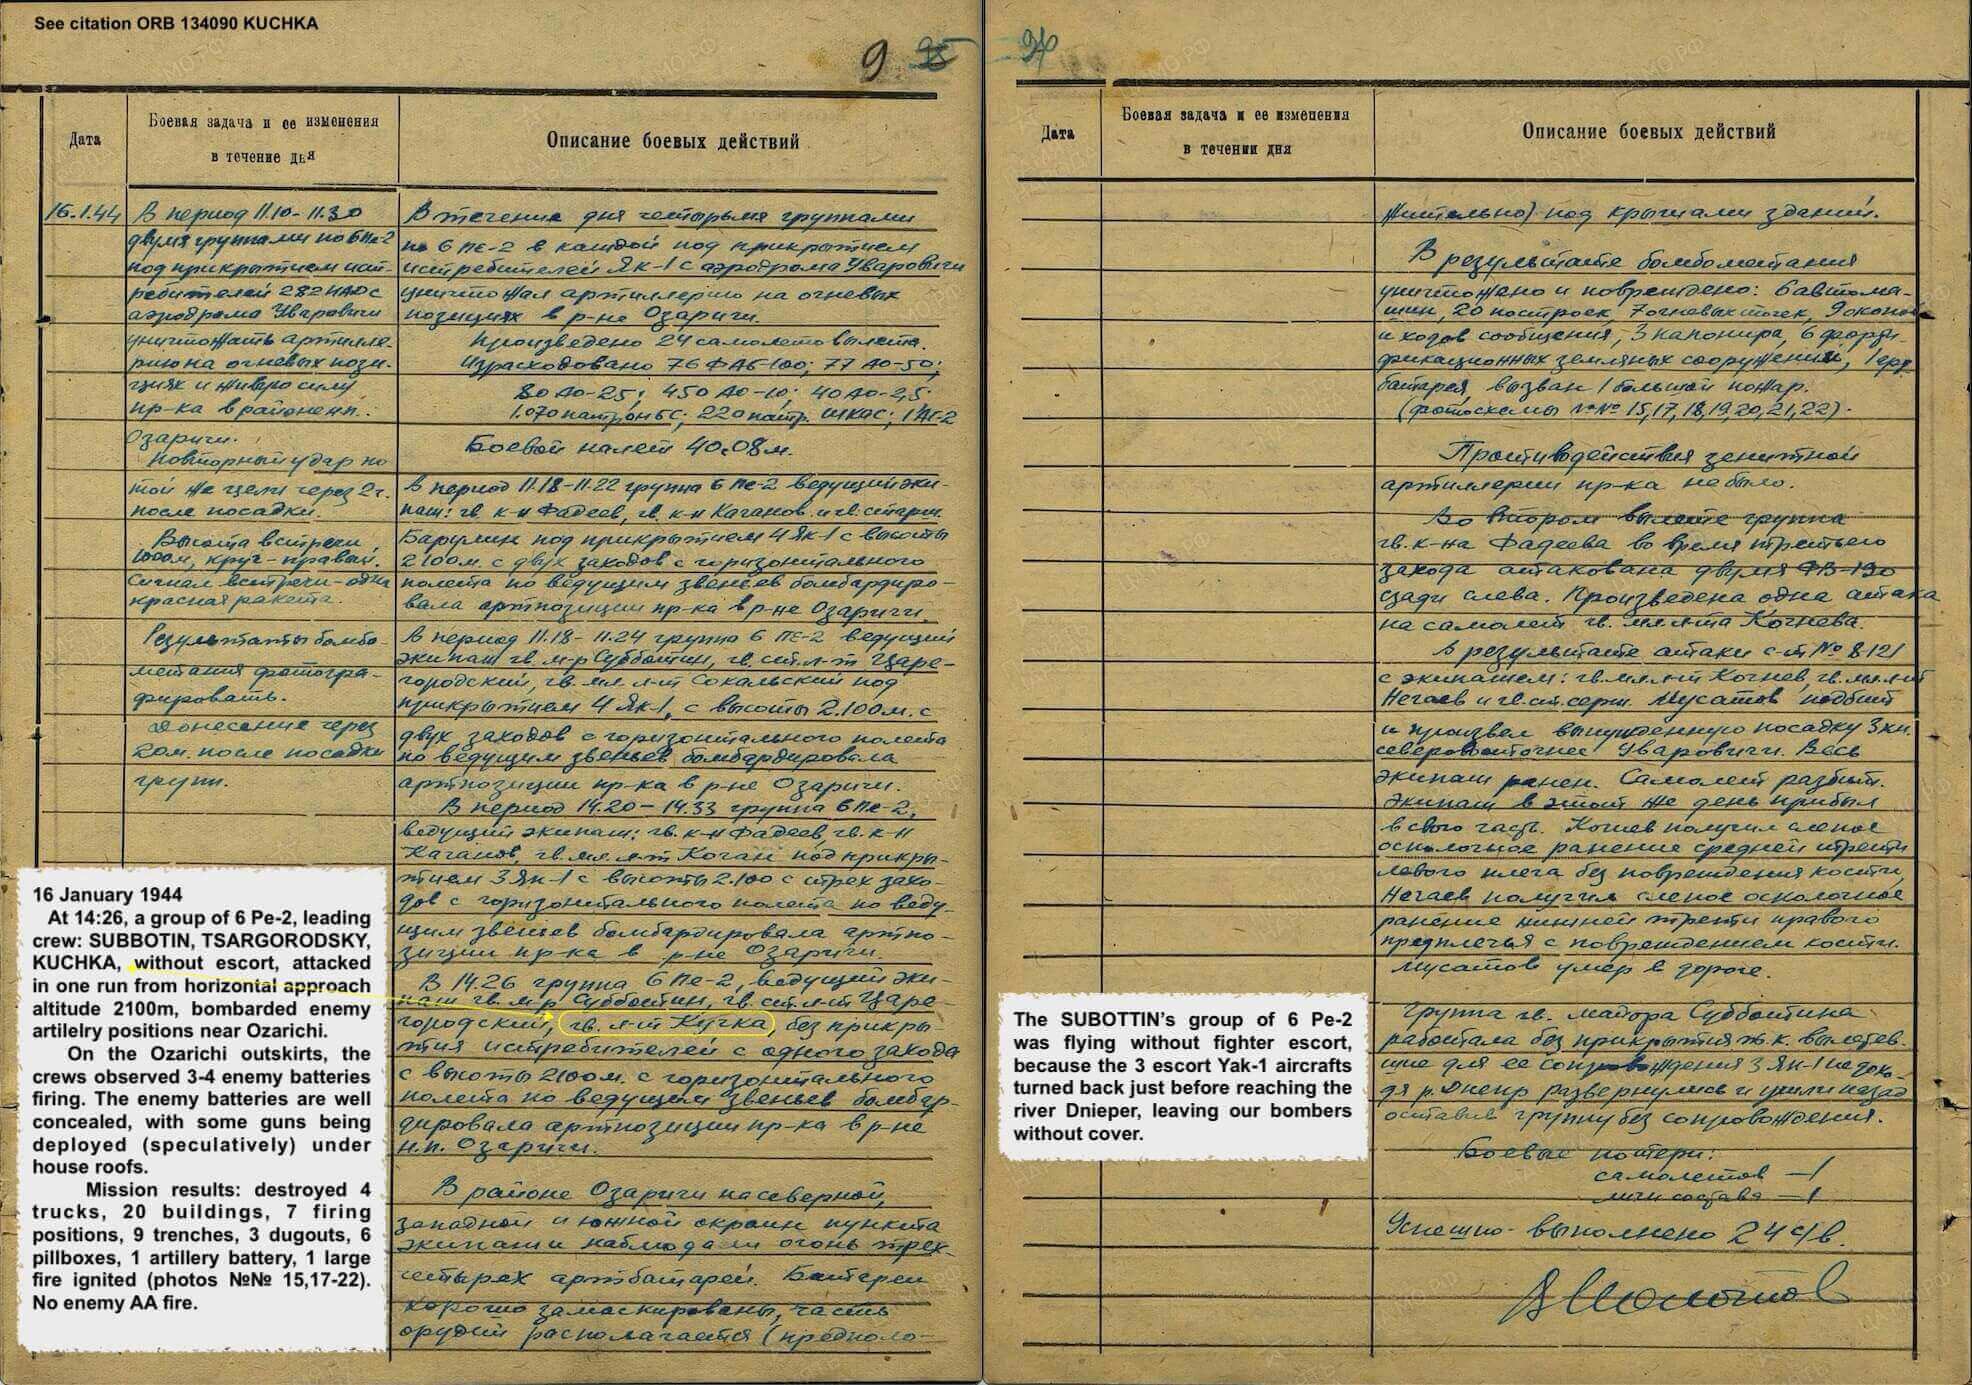 See citation ORB 134090 KUCHKA
9 95
Дата
Боевая задача и ее изменения
в течение дня
Описание боевых действий
16.1.44
В период 11.10-11.30
двумя группами по 6 Пе-2
под прикрытием ист-
ребителей 282 ИАД с
аэродрома Уваровичи
уничтожать артилле-
рию на огневых пози-
циях и живую силу
пр-ка в районе нп.
Озаричи.
Повторный удар по
той же цели через 2 ч.
после посадки.
Высота встречи
1000м, круг-правый.
Сигнал встречи-одна
красная ракета.
Результаты бомбо-
метания фотогра-
фировать.
Донесение через
20м. после посадки
групп.
В течение дня четырьмя группами
по 6 ПЕ-2 в каждой под прикрытием
истребителей Як-1 с аэродрома Уваровичи
уничтожал артиллерию на огневых
позициях в р-не Озаричи.
Произведено 24 самолетовылета.
Израсходовано 76 ФАБ-100; 77 АО-50;
80 АО-25; 450 АО-10; 40 АО-2,5;
1.070 патрон БС; 220 патр. ШКАС; 1 АГ-2
Боевой налет 40.08м.
В период 11.18-11.22 группа 6 Пе-2 ведущий эки-
паж: гв. к-н Фадеев, гв. к-н Каганов и гв. старш.
Барулин под прикрытием 4 Як-1 с высоты
2100м. с двух заходов с горизонтального
полета по ведущим звеньев бомбардиро-
вала артпозиции пр-ка в р-не Озаричи.
В период 11.18-11.24 группа 6 ПЕ-2 ведущий
экипаж гв. м-р Субботин, гв. ст. л-т Царе-
городский, гв. мл. л-т Сокальский под
прикрытием 4 Як-1, с высоты 2.100м. с
двух заходов с горизонтального полета
по ведущим звеньев бомбардировала
артпозиции пр-ка в р-не Озаричи.
В период 14.20-14.33 группа 6 Пе-2,
ведущий экипаж: гв. к-н Фадеев, гв. к-н
Каганов, гв. мл. л-т Коган под прикры-
тием 3 Як-1 с высоты 2.100 с трех захо-
дов с горизонтального полета по веду-
щим звеньев бомбардировала артпо-
зиции пр-ка в р-не Озаричи.
В 14.26 группа 6 Пе-2, ведущий эки-
паж гв. м-р Субботин, гв. ст. л-т Царе-
городский, гв. л-т Кучка без прикры-
тия истребителей с одного захода
с высоты 2100м. с горизонтального
полета по ведущим звеньев бомбар-
дировала артпозиции пр-ка в р-не
н.п. Озаричи.
В районе Озаричи на северной,
западной и южной окраин пункта
экипажи наблюдали огонь трех-
четырех артбатарей. Батареи
хорошо замаскированы, часть
орудий располагается (предполо-
16 January 1944
At 14:26, a group of 6 Pe-2, leading
crew: SUBBOTIN, TSARGORODSKY,
KUCHKA, without escort, attacked
in one run from horizontal approach
altitude 2100m, bombarded enemy
artilelry positions near Ozarichi.
On the Ozarichi outskirts, the
crews observed 3-4 enemy batteries
firing. The enemy batteries are well
concealed, with some guns being
deployed (speculatively) under
house roofs.
Mission results: destroyed 4
trucks, 20 buildings, 7 firing
positions, 9 trenches, 3 dugouts, 6
pillboxes, 1 artillery battery, 1 large
fire ignited (photos №№ 15,17-22).
No enemy AA fire.
Дата
Боевая задача и ее изменения
в течении дня
Описание боевых действий
жительно) под крышами зданий.
В результате бомбометания
уничтожено и повреждено: 6 автома-
шин, 20 построек, 7 огневых точек, 9 окопов
и ходов сообщения, 3 капонира, 6 форти-
фикационных земляных сооружений, 1 арт
батарея, вызван 1 большой пожар.
(фотосхемы №№ 15,17,18,19,20,21,22).
Противодействия зенитной
артиллерии пр-ка не было.
Во втором вылете группа
гв. к-на Фадеева во время третьего
захода атакована двумя ФВ-190
сзади слева. Произведена одна атака
на самолет гв. мл. л-та Кочнева.
В результате атаки с-т № 8121
с экипажем: гв. мл. л-т Кочнев, гв. мл. л-т
Нечаев и гв. ст. серж. Мусатов подбит
и произвел вынужденную посадку 3 км.
северовосточнее Уваровичи. Весь
экипаж ранен. Самолет разбит.
Экипаж в этот же день прибыл
в свою часть. Кочнев получил слепое
осколочное ранение средней трети
левого плеча без повреждения кости,
Нечаев получил слепое осколочное
ранение нижней трети правого
предплечья с повреждением кости.
Мусатов умер в дороге.
Группа гв. майора Субботина
работала без прикрытия т.к. вылетев-
шие для ее сопровождения 3 Як-1 не дохо-
дя р. Днепр развернулись и ушли назад
оставив группу без сопровождения.
Боевые потери:
самолетов -1
личн состава -1
Успешно выполнено 24 с/в.
The SUBOTTIN's group of 6 Pe-2
was flying without fighter escort,
because the 3 escort Yak-1 aircrafts
turned back just before reaching the
river Dnieper, leaving our bombers
without cover.